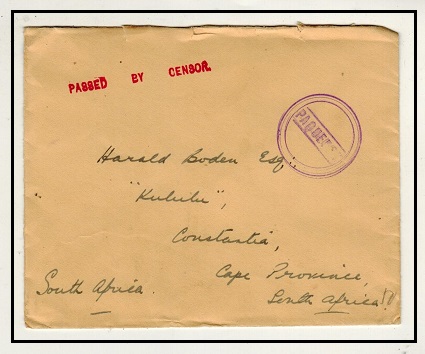 PASSED BY CENSOR.
PAQUEBOT
Harald Boden Esq.,
"Kululu",
Constantia,
Cape Province,
South Africa.
South Africa.